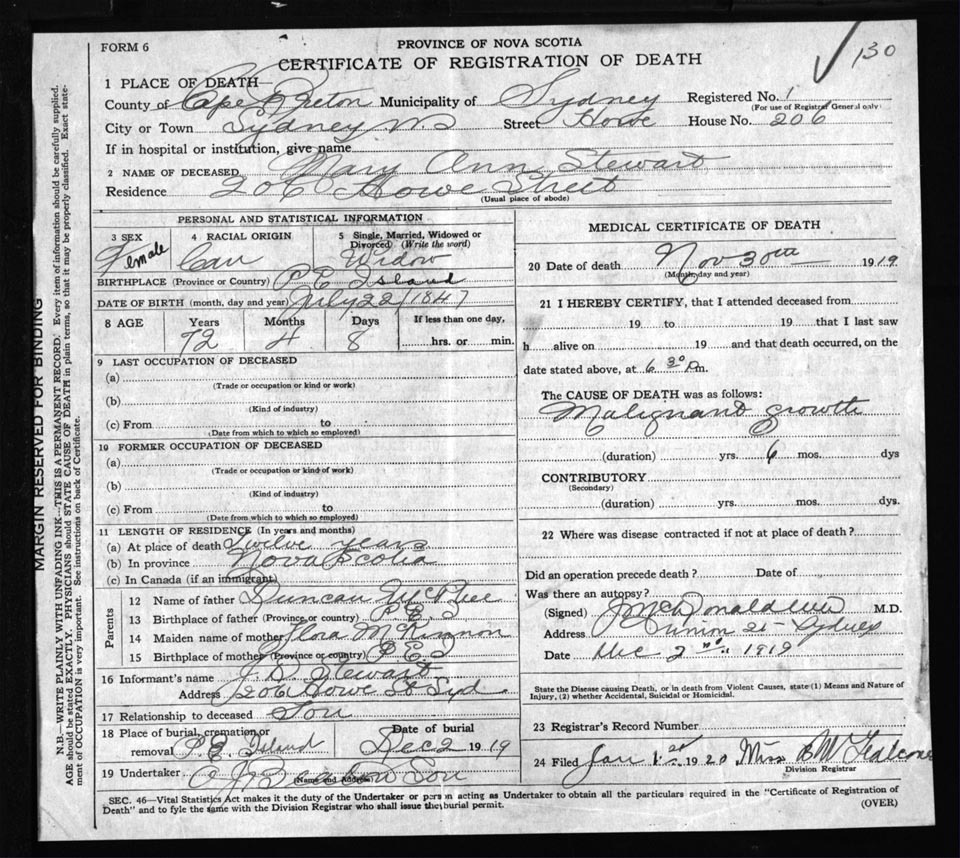 FORM 6
PROVINCE OF NOVA SCOTIA
CERTIFICATE OF REGISTRATION OF DEATH
130
1 PLACE OF DEATH—
County of Cape Breton Municipality of Sydney Registered No. 1
(For use of Registrar General only)
City or Town Sydney N.S Street Howe House No. 206
If in hospital or institution, give name
2 NAME OF DECEASED Mary Ann Stewart
Residence 206 Howe Street
(Usual place of abode)
PERSONAL AND STATISTICAL INFORMATION
3 SEX 4 RACIAL ORIGIN 5 Single, Married, Widowed or Divorced (Write the word)
Female Can Widow
BIRTHPLACE (Province or Country) P E Island
DATE OF BIRTH (month, day and year) July 22/1847
8 AGE Years Months Days If less than one day,
72 4 8 hrs. or min.
9 LAST OCCUPATION OF DECEASED
(a)
(Trade or occupation or kind or work)
(b)
(Kind of industry)
(c) From to
(Date from which to which so employed)
10 FORMER OCCUPATION OF DECEASED
(a)
(Trade or occupation or kind of work)
(b)
(Kind of industry)
(c) From to
(Date from which to which so employed)
11 LENGTH OF RESIDENCE (In years and months)
(a) At place of death twelve years
(b) In province Nova Scotia
(c) In Canada (if an immigrant)
Parents
12 Name of father Duncan McPhee
13 Birthplace of father (Province or country) P E I
14 Maiden name of mother Flora McKinnon
15 Birthplace of mother (Province or country) P E I
16 Informant's name J. D. Stewart
Address 206 Howe St Syd
17 Relationship to deceased Son
18 Place of burial, cremation or removal P.E. Island Date of burial Dec 2 1919
19 Undertaker Son
(Name and Address)
MEDICAL CERTIFICATE OF DEATH
20 Date of death Nov 30th 1919
(Month, day and year)
21 I HEREBY CERTIFY, that I attended deceased from
19 to 19 that I last saw
h alive on 19 and that death occurred, on the
date stated above, at 6 30 P.m.
The CAUSE OF DEATH was as follows:
Malignant growth
(duration) yrs. 6 mos. dys
CONTRIBUTORY
(Secondary)
(duration) yrs. mos. dys.
22 Where was disease contracted if not at place of death?
Did an operation precede death? Date of
Was there an autopsy?
(Signed) M.D.
Address Union St - Sydney
Date Dec 2nd 1919
State the Disease causing Death, or in death from Violent Causes, state (1) Means and Nature of
Injury, (2) whether Accidental, Suicidal or Homicidal.
23 Registrar's Record Number
24 Filed Jan 1st 1920 Miss
Division Registrar
SEC. 46—Vital Statistics Act makes it the duty of the Undertaker or person acting as Undertaker to obtain all the particulars required in the "Certificate of Registration of
Death" and to fyle the same with the Division Registrar who shall issue the burial permit.
(OVER)
MARGIN RESERVED FOR BINDING
N.B.—WRITE PLAINLY WITH UNFADING INK—THIS IS A PERMANENT RECORD. Every item of information should be carefully supplied.
AGE should be stated EXACTLY. PHYSICIANS should STATE CAUSE OF DEATH in plain terms, so that it may be properly classified. Exact state-
ment of OCCUPATION is very important. See instructions on back of Certificate.